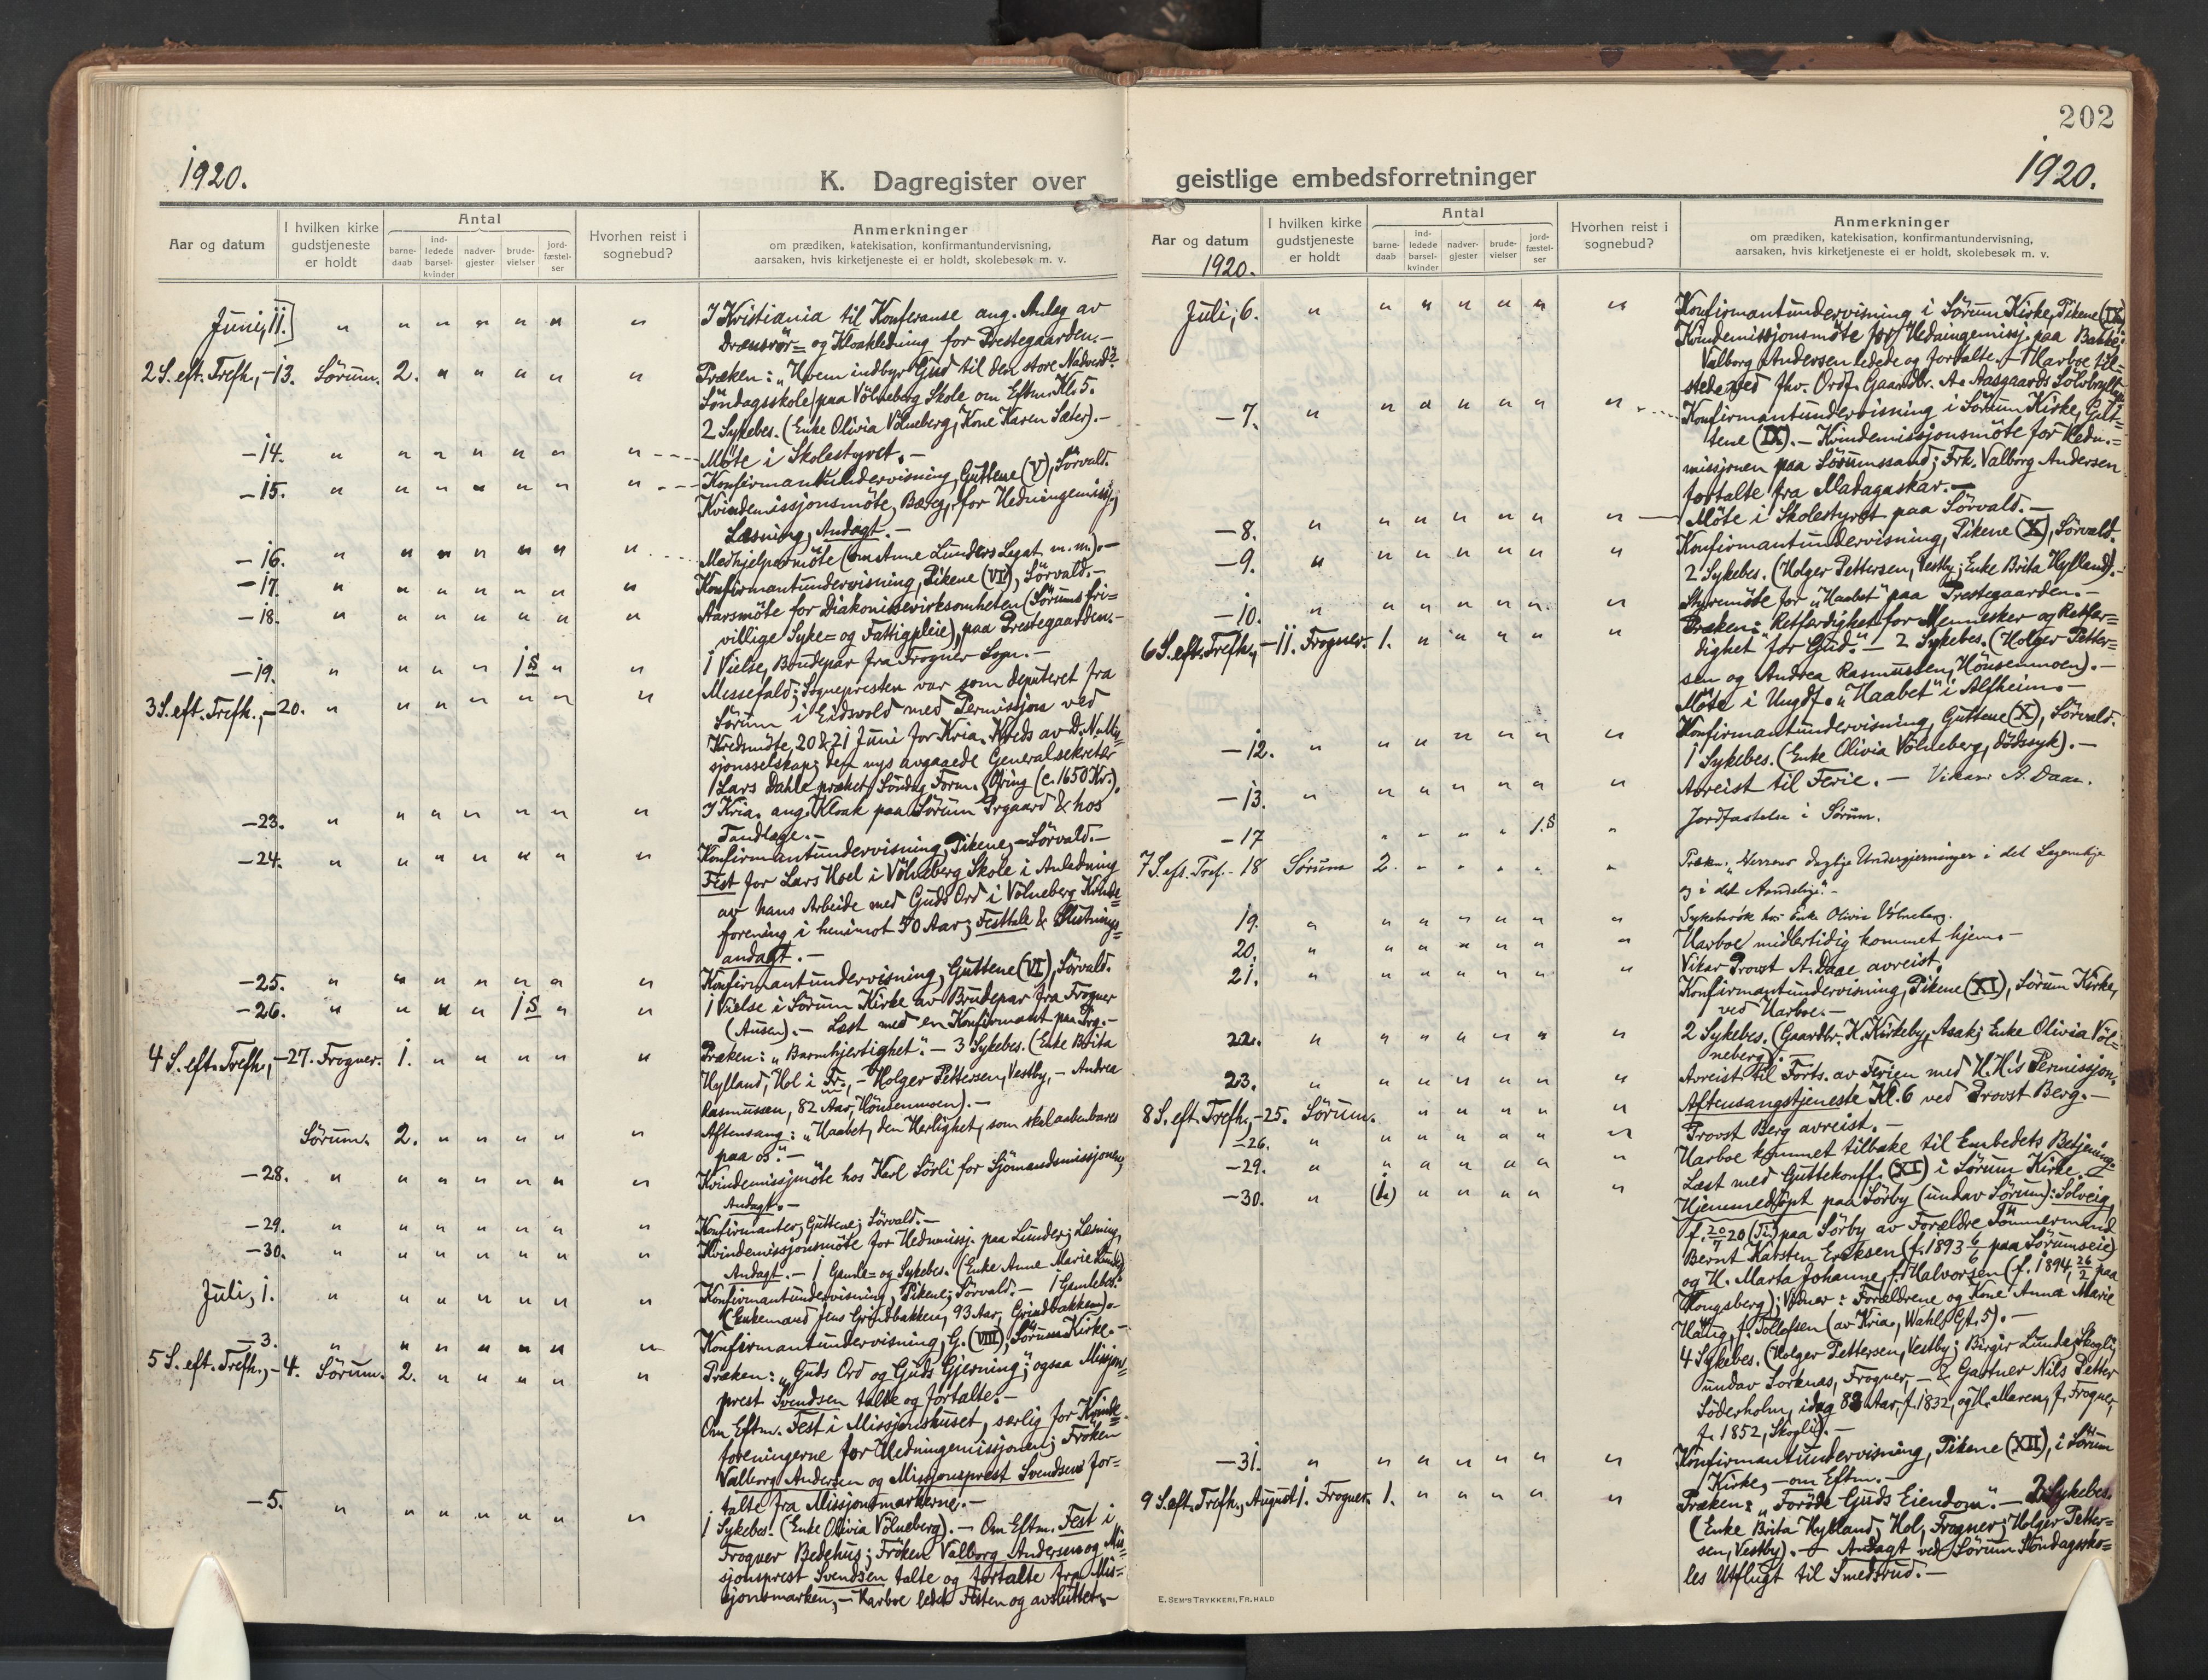 202
1920.
K. Dagregister over
geistlige embedsforretninger
1920.
Aar og datum
I hvilken kirke gudstjeneste er holdt
Antal
barne-daab
ind-ledede barsel-kvinder
nadver-gjester
brude-vielser
jord-fæstel-ser
Hvorhen reist i sognebud?
Anmerkninger
om prædiken, katekisation, konfirmantundervisning,
aarsaken, hvis kirketjeneste ei er holdt, skolebesøk m. v.
Juni, 11. " " " " " " " I Kristiania til Konferanse ang. Anlæg av
Drænsrør= og Kloakledning for Prestegaarden.—
2 S. eft. Trefh., —13. Sörum. 2. " " " " " Præken: „Hvem indbyr Gud til den store Nadverd?"
Söndagsskole paa Völneberg Skole om Eftm. Kl. 5.
2 Sykebes. (Enke Olivia Völneberg, Kone Karen Sæter).—
—14. " " " " " " " Möte i Skolestyret.—
—15. " " " " " " " Konfirmantundervisning, Guttene (V), Sörvald.
Kvindemissjonsmöte, Bareg, for Hedningemissj.;
Læsning, Andagt.—
—16. " " " " " " " Medhjelpermöte (om Anne Lunders Legat m. m.).—
—17. " " " " " " " Konfirmantundervisning, Pikene (VI), Sörvald.—
—18. " " " " " " " Aarsmöte for Diakonissevirksomheten (Sörums fri=
villige Syke= og Fattigpleie), paa Prestegaarden.—
—19. " " " " 1 S " " 1 Vielse, Brudepar fra Frogner Sogn.—
3 S. eft. Trefh., —20. " " " " " " " Messefald; Sognepresten var som deputeret fra
Sörum i Eidsvold med Permissjon ved
Kredsmöte, 20 & 21 Juni for Kria. Kreds av D. N. Mis=
sjonsselskap; den nys avgaaede Generalsekretær
Lars Dahle præket Söndag Form. Ofring (c. 1650 Kr.).
—23. " " " " " " " I Kria. ang. Kloak paa Sörum Prgaard & hos
Tandlæge.—
—24. " " " " " " " Konfirmantundervisning, Pikene, — Sörvald.—
Fest for Lars Hoel i Völneberg Skole i Anledning
av hans Arbeide med Guds Ord i Völneberg Kvinde=
forening i henimot 50 Aar; Festtale & Slutnings=
andagt.—
—25. " " " " " " " Konfirmantundervisning, Guttene (VI), Sörvald.
—26. " " " " 1 S " " 1 Vielse i Sörum Kirke av Brudepar fra Frogner
(Ausen).— Læst med en Konfirmant paa Prg.—
4 S. eft. Trefh., —27. Frogner. 1. " " " " " Præken: „Barmhjertighet".— 3 Sykebes. (Enke Brita
Hylland, Hol i Fr., — Holger Pettersen, Vestby, — Andrea
Rasmussen, 82 Aar, Hönsenmoen).—
Sörum. 2. " " " " " Aftensang: „Haabet, den Herlighet, som skal aabenbares
paa os".—
—28. " " " " " " " Kvindemissjmöte hos Karl Sörli for Sjömandsmissjonen,
Andagt.—
—29. " " " " " " " Konfirmanter, Guttene; Sörvald.—
—30. " " " " " " " Kvindemissjonsmöte for Hednmissj. paa Lunder; Læsning,
Andagt.— 1 Gamle= og Sykebes. (Enke Anne Marie Lunder)
Juli, 1. " " " " " " " Konfirmantundervisning, Pikene; Sörvald.— 1 Gamlebes.
(Enkemand Jens Grindbakken, 93 Aar, Grindbakken).—
—3. " " " " " " " Konfirmantundervisning, G. (VIII), Sörum Kirke.—
5 S. eft. Trefh., —4. Sörum. 2. " " " " " Præken: „Guds Ord og Guds Gjerning"; ogsaa Missjons=
prest Svendsen talte og fortalte.—
Om Eftm. Fest i Missjonshuset, særlig for Kvinde=
foreningerne for Hedningemissjonen; Fröken
Valborg Andersen og Missjonsprest Svendsen for=
talte fra Missjonsmarkerne.—
—5. " " " " " " " 1 Sykebes. (Enke Olivia Völneberg).— Om Eftm. Fest i
Frogner Bedehus; Fröken Valborg Andersen og Mis=
sjonsprest Svendsen talte og fortalte fra Mis=
sjonsmarken,— Harboe ledet Festen og avsluttet.—
Aar og datum
1920.
I hvilken kirke gudstjeneste er holdt
Antal
barne-daab
ind-ledede barsel-kvinder
nadver-gjester
brude-vielser
jord-fæstel-ser
Hvorhen reist i sognebud?
Anmerkninger
om prædiken, katekisation, konfirmantundervisning,
aarsaken, hvis kirketjeneste ei er holdt, skolebesøk m. v.
Juli, 6. " " " " " " " Konfirmantundervisning i Sörum Kirke, Pikene (IX).
Kvindemissjonsmöte for Hedningemissj. paa Bakke;
Valborg Andersen ledede og fortalte.— Harboe til=
stede ved fhv. Ordf. Gaardbr. A. Aasgaards Sölvbryllup.
—7. " " " " " " " Konfirmantundervisning i Sörum Kirke, Gut=
tene (IX).— Kvindemissjonsmöte for Hedn.=
missjonen paa Sörumssand; Frk. Valborg Andersen
fortalte fra Madagaskar.—
—8. " " " " " " " Möte i Skolestyret paa Sörvald.—
—9. " " " " " " " Konfirmantundervisning, Pikene (X), Sörvald.
2 Sykebes. (Holger Pettersen, Vestby; Enke Brita Hylland).—
—10. " " " " " " " Styremöte for „Haabet" paa Prestegaarden.—
6 S. eft. Trefh., —11. Frogner. 1. " " " " " Præken: „Retfærdighet for Mennesker og Retfær=
dighet for Gud."— 2 Sykebes. (Holger Petter=
sen og Andrea Rasmussen, Hönsenmoen).—
Möte i Ungdf. „Haabet" i Alfheim.—
—12. " " " " " " " Konfirmantundervisning, Guttene (X), Sörvald.
1 Sykebes. (Enke Olivia Völneberg, dödssyk).—
—13. " " " " " " " Avreist til Ferie.— Vikar: A. Daae.
—17 " " " " 1.S " Jordfæstelse i Sörum.
7 S. eft. Tref. - 18 Sörum 2. " " " " " Præken: „Herrens daglige Undergjerninger i det Legemlige
og i det Aandelige".—
19. " " " " " " " Sykebesök hos Enke Olivia Völneberg.
20. " " " " " " " Harboe midlertidig kommet hjem.—
21. " " " " " " " Vikar Provst A. Daae avreist.
Konfirmantundervisning, Pikene (XI), Sörum Kirke,
ved Harboe.—
22. " " " " " " " 2 Sykebes. (Gaardbr. K. Kirkeby, Asak; Enke Olivia Völ=
neberg).
23. " " " " " " " Avreist til Forts. av Ferien med H. H.'s Permissjon.
8 S. eft. Trefh., —25. Sörum. " " " " " Aftensangstjeneste Kl. 6 ved Provst Berg.—
—26. " " " " " " " Provst Berg avreist.—
—29. " " " " " " " Harboe kommet tilbake til Embedets Betjening.
Læst med Guttekonff. (XI) i Sörum Kirke.—
—30. " (1) " " " " " Hjemmedöpt paa Sörby (undav Sörum): Solveig,
f. 20/7 20 (Ti.) paa Sörby av Forældre Tömmermand
Bernt Karsten Eriksen (f. 1893 6/6 paa Sörumseie)
og H. Marta Johanne, f. Halvorsen (f. 1894, 26/2 paa
Kongsberg); Vidner: Forældrene og Kone Anna Marie
Haug, f. Tollefsen (av Kria., Wahls Gt. 5).—
4 Sykebes. (Holger Pettersen, Vestby; Birger Lunde, Skogli
undav Lorknæs, Frogner,— & Gartner Nils Petter
Söderholm, idag 88 Aar, f. 1832, og H. Maren, f. Frogner,
f. 1852, Skogli).—
—31. " " " " " " " Konfirmantundervisning, Pikene (XII), i Sörum
Kirke,— om Eftm.—
9 S. eft. Trefh., August 1. Frogner. 1. " " " " " Præken: „Foröde Guds Eiendom".— 2 Sykebes.
(Enke Brita Hylland, Hol, Frogner; Holger Petter=
sen, Vestby).— Andagt ved Sörum Söndagssko=
les Utflugt til Smedsrud.—
E. SEM'S TRYKKERI, FR.HALD